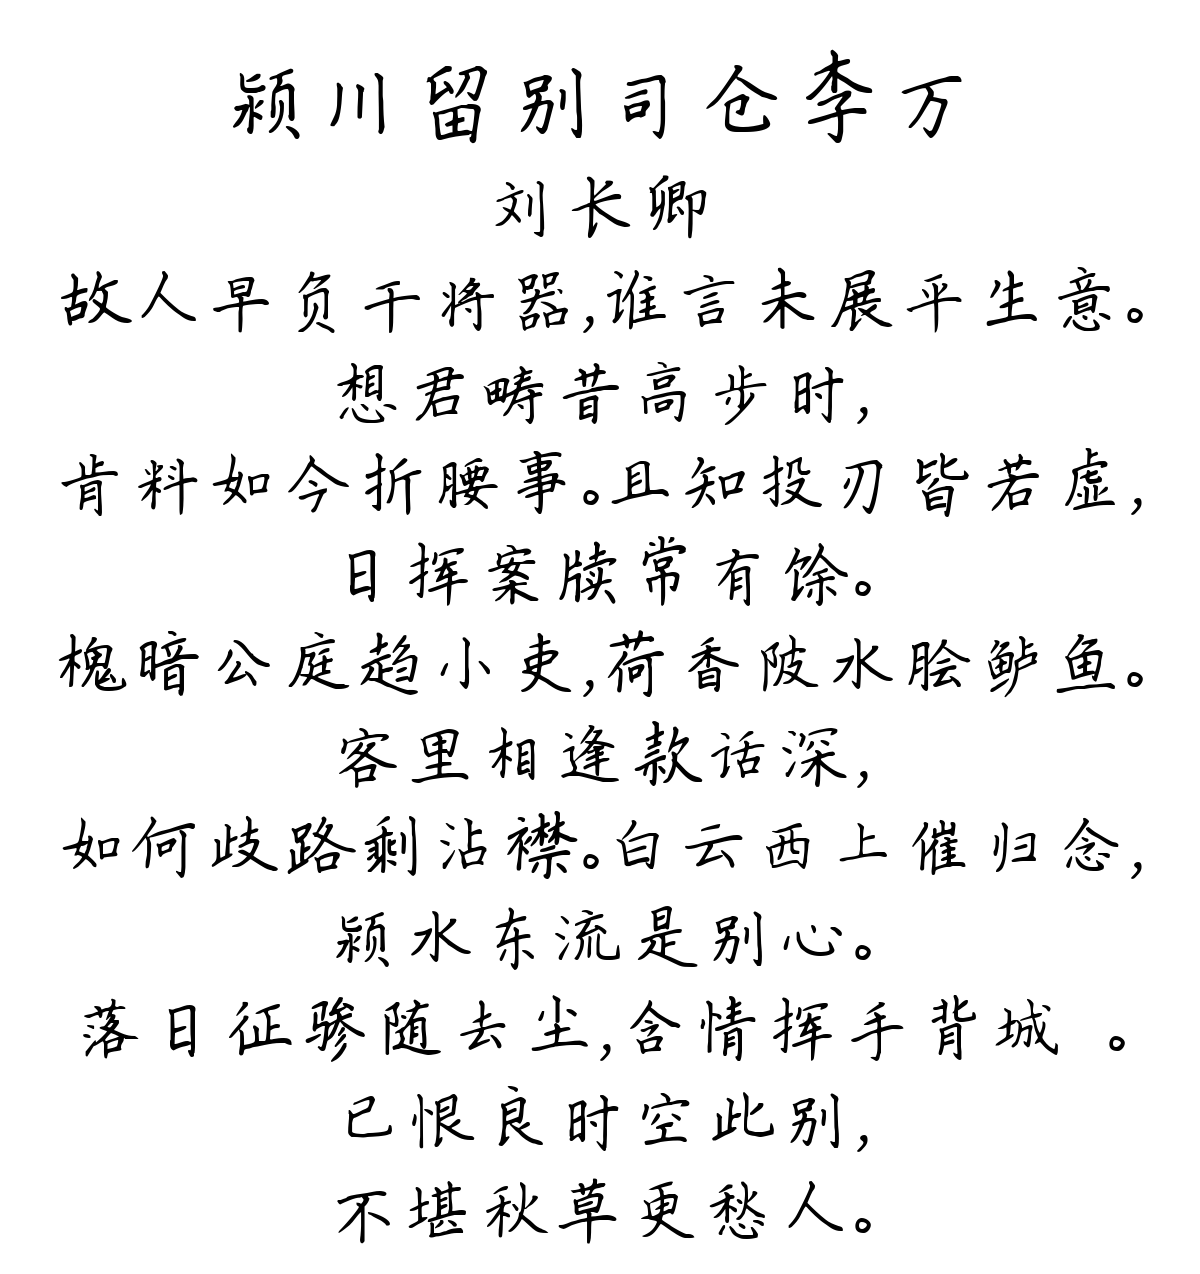 颍川留别司仓李万
刘长卿
故人早负干将器,谁言未展平生意。
想君畴昔高步时,
肯料如今折腰事。且知投刃皆若虚,
日挥案牍常有馀。
槐暗公庭趋小吏,荷香陂水脍鲈鱼。
客里相逢款话深,
如何歧路剩沾襟。白云西上催归念,
颍水东流是别心。
落日征骖随去尘,含情挥手背城 。
已恨良时空此别,
不堪秋草更愁人。